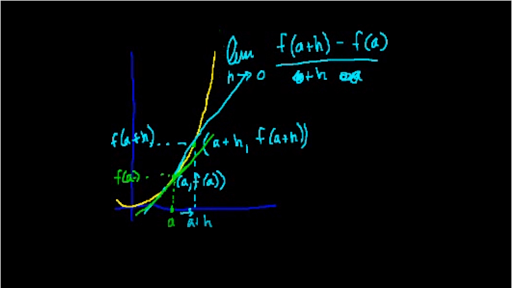 lim f(a+h) - f(a)
h→0 +h
f(a+h)
(a+h, f(a+h))
f(a)
(a, f(a))
a → a+h